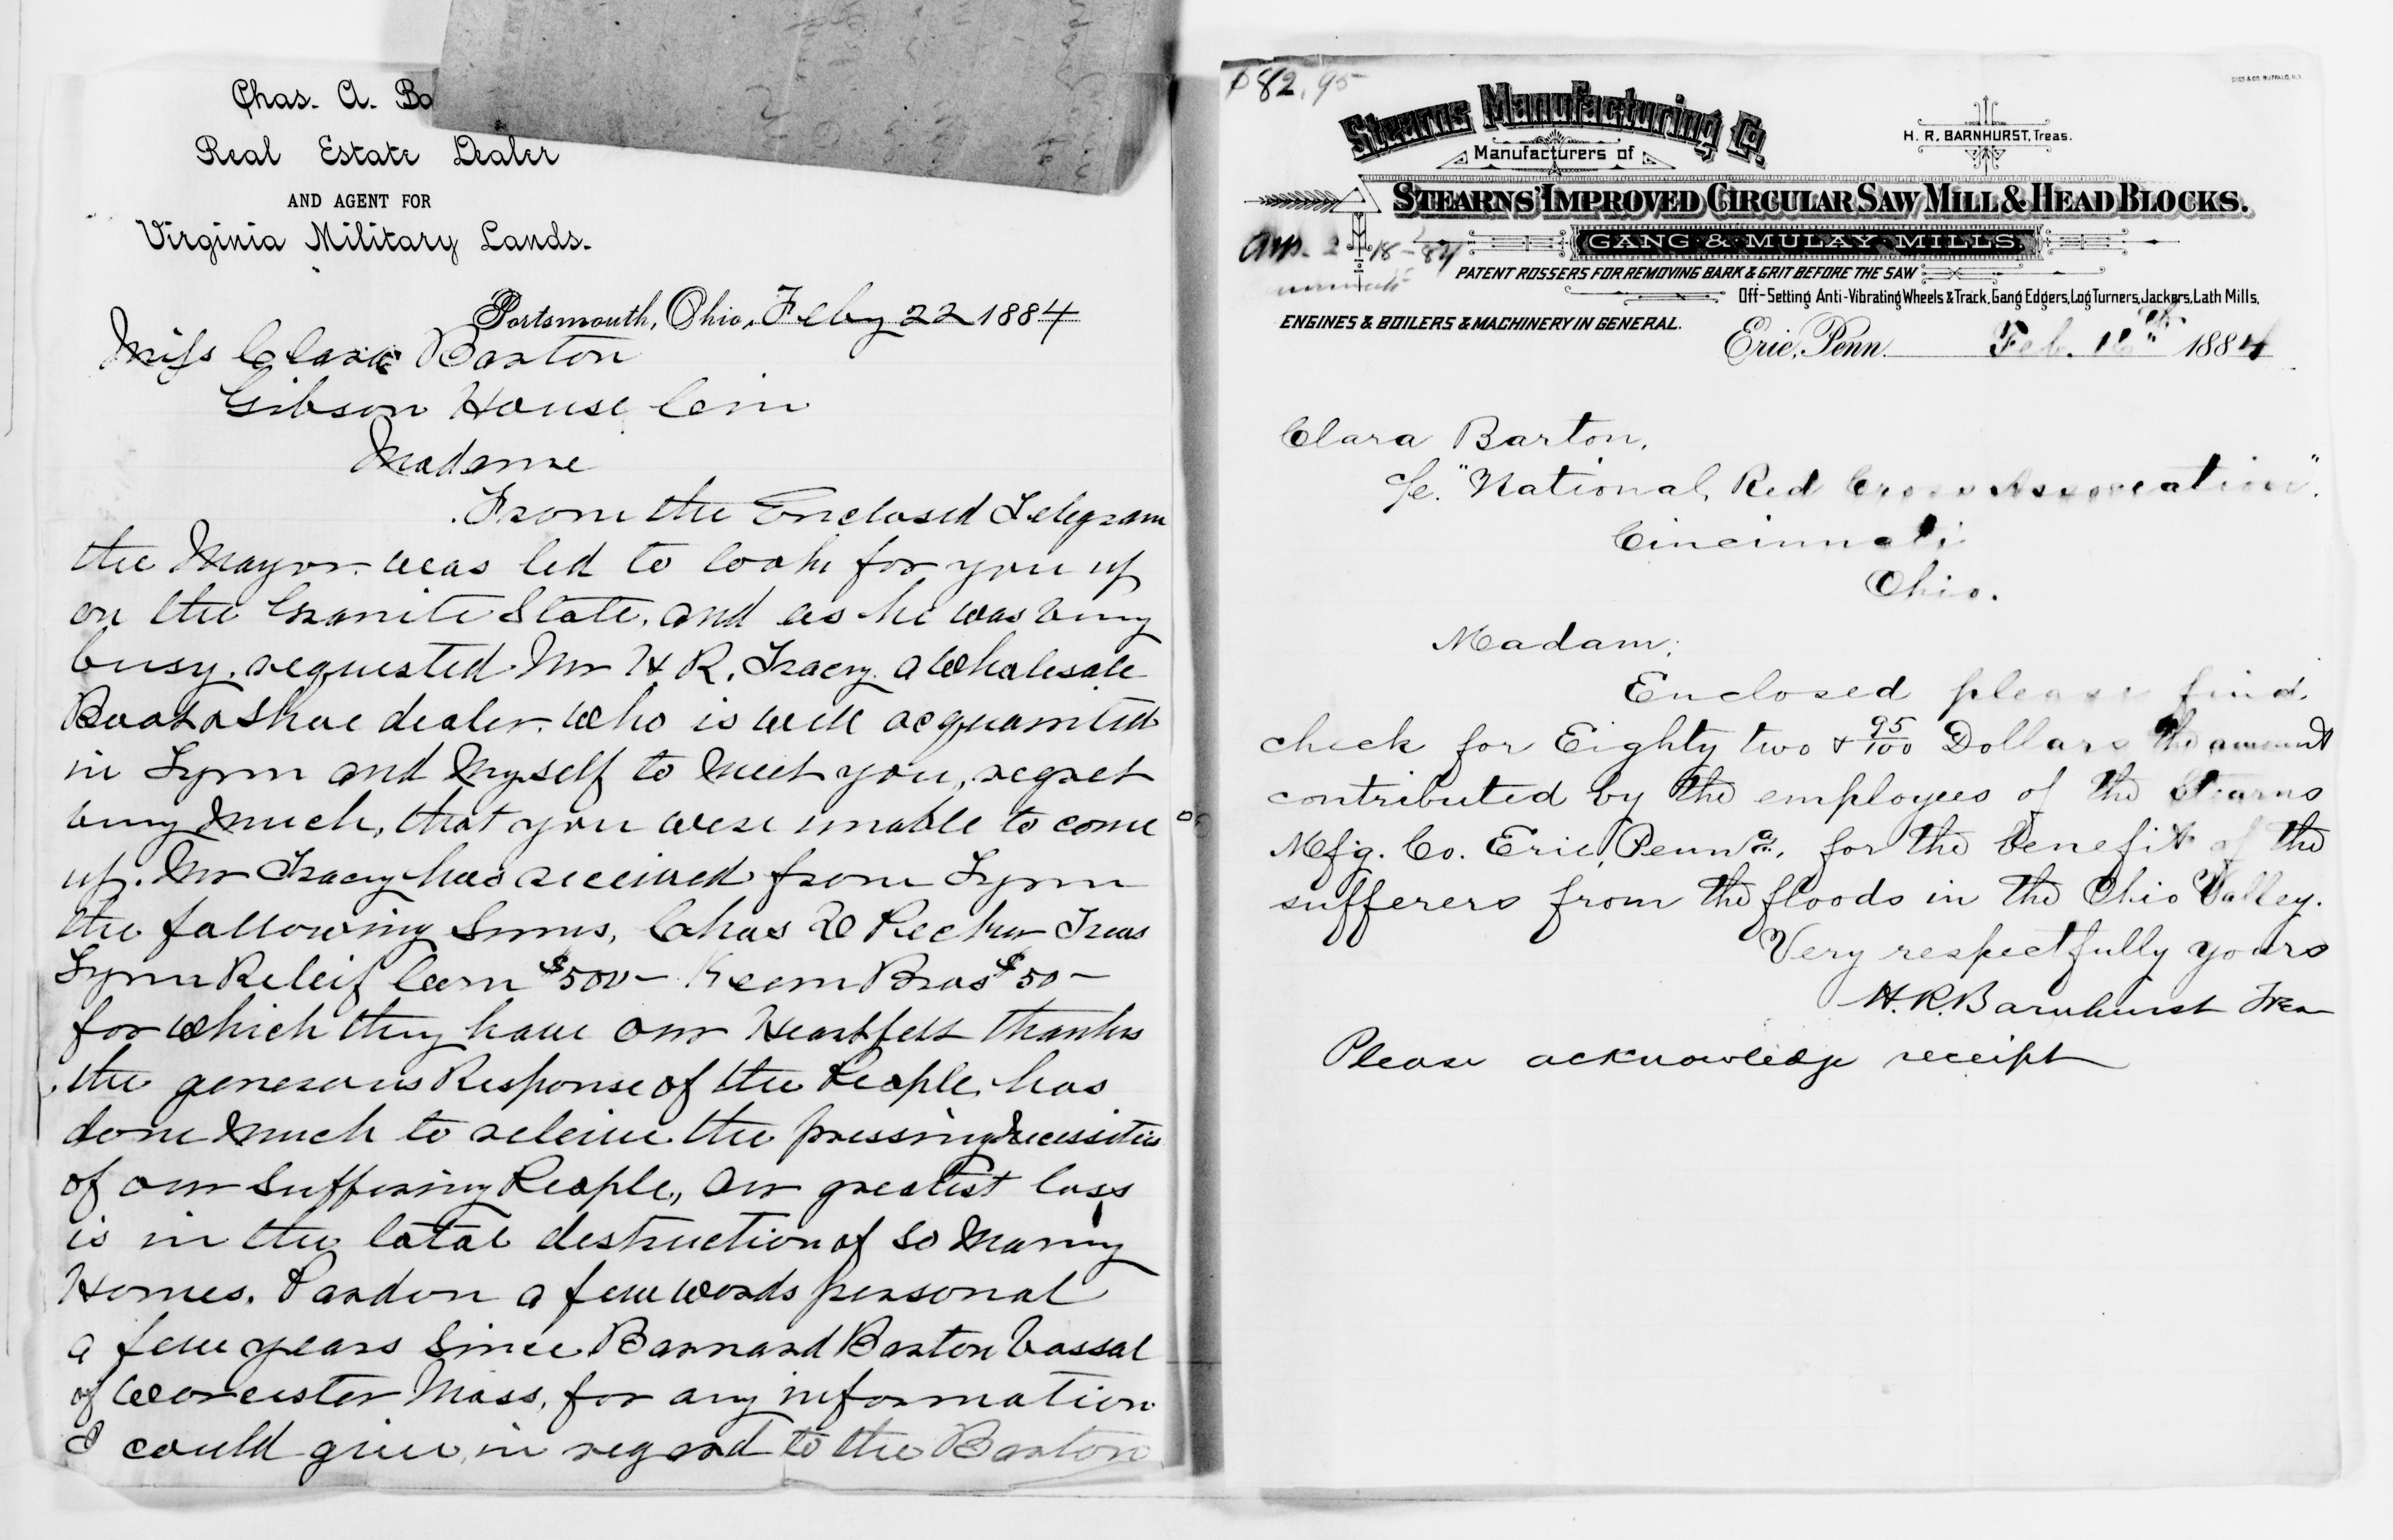 Chas. A. Ba
Real Estate Dealer
AND AGENT FOR
Virginia Military Lands.
Portsmouth, Ohio, Feby 22 1884
Miss Clara Barton
Gibson House Cin
Madame
From the Enclosed Telegram
the Mayor was led to look for you up
on the Granite State. and as he was very
busy. requested Mr H R. Tracy. a Wholesale
Boot & Shoe dealer. who is well acquainted
in Lynn and Myself to meet you, regret
very much, that you were unable to come
up. Mr Tracy has received from Lynn
the following Sums, Chas Treas
Lynn Releif Com $500 - Keene Bros $50 -
for which they have our Heartfelt thanks
the generous Response of the People has
done much to releive the pressing Necessities
of our Suffering People, our greatest loss
is in the total destruction of so many
Homes. Pardon a few words personal
a few years since Barnard Barton Vassal
of Worcester Mass, for any information
I could give, in regard to the Barton
$82.95
GIES & CO. BUFFALO, N.Y.
Stearns Manufacturing Co.
H. R. BARNHURST, Treas.
Manufacturers of
STEARNS' IMPROVED CIRCULAR SAW MILL & HEAD BLOCKS.
GANG & MULAY MILLS,
18-84
PATENT ROSSERS FOR REMOVING BARK & GRIT BEFORE THE SAW
Off-Setting Anti-Vibrating Wheels & Track, Gang Edgers, Log Turners, Jackers, Lath Mills,
ENGINES & BOILERS & MACHINERY IN GENERAL.
Erie, Penn. Feb. 16th 1884
Clara Barton,
c/o. "National, Red Cross Association".
Cincinnati
Ohio.
Madam;
Enclosed please find.
check for Eighty two & 95/100 Dollars the amount
contributed by the employees of the Stearns
Mfg. Co. Erie, Penna., for the benefit of the
sufferers from the floods in the Ohio Valley.
Very respectfully yours
H. R. Barnhurst Trea
Please acknowledge receipt